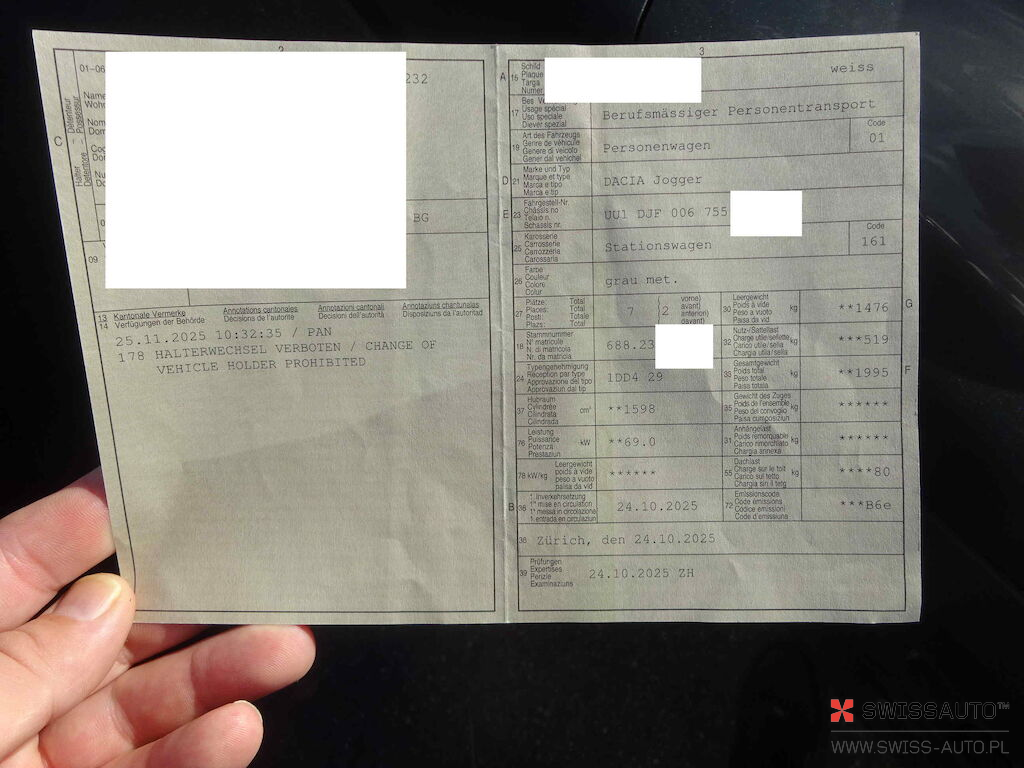 2
01-06
232
Name
Woh
Nom
Dom
Cog
Don
Nu
Do
C
Halter - Détenteur
Detentore - Possessur
0
BG
09
13 Kantonale Vermerke Annotations cantonales Annotazioni cantonali Annotaziuns chantunalas
14 Verfügungen der Behörde Décisions de l'autorité Decisioni dell'autorità Disposiziuns da l'autoritad
25.11.2025 10:32:35 / PAN
178 HALTERWECHSEL VERBOTEN / CHANGE OF
VEHICLE HOLDER PROHIBITED
3
A 15 Schild
Plaque
Targa
Numer
weiss
17 Bes. V
Usage spécial
Uso speciale
Diever spezial
Berufsmässiger Personentransport
19 Art des Fahrzeugs
Genre de véhicule
Genere di veicolo
Gener dal vehichel
Personenwagen
Code
01
D 21 Marke und Typ
Marque et type
Marca e tipo
Marca e tip
DACIA Jogger
E 23 Fahrgestell-Nr.
Châssis no
Telaio n.
Schassis nr.
UU1 DJF 006 755
25 Karosserie
Carrosserie
Carrozzeria
Carossaria
Stationswagen
Code
161
26 Farbe
Couleur
Colore
Colur
grau met.
27 Plätze: Total
Places: Total
Posti: Totale
Plazs: Total
7 (2 vorne)
avant)
anteriori)
davant)
30 Leergewicht
Poids à vide
Peso a vuoto
Paisa da vid
kg **1476 G
18 Stammnummer
N° matricule
N. di matricola
Nr. da matricla
688.23
32 Nutz-/Sattellast
Charge utile/sellette
Carico utile/sella
Chargia utila/sella
kg ***519
24 Typengenehmigung
Réception par type
Approvazione del tipo
Approvaziun dal tip
1DD4 29
33 Gesamtgewicht
Poids total
Peso totale
Paisa totala
kg **1995 F
37 Hubraum
Cylindrée
Cilindrata
Cilindrada
cm³ **1598
35 Gewicht des Zuges
Poids de l'ensemble
Peso del convoglio
Paisa cumposiziun
kg ******
76 Leistung
Puissance
Potenza
Prestaziun
kW **69.0
31 Anhängelast
Poids remorquable
Carico rimorchiato
Chargia annexa
kg ******
78 kW/kg Leergewicht
poids à vide
peso a vuoto
paisa da vid
******
55 Dachlast
Charge sur le toit
Carico sul tetto
Chargia sin il tetg
kg ****80
B 36 1. Inverkehrsetzung
1re mise en circulation
1a messa in circolazione
1. entrada en circulaziun
24.10.2025
72 Emissionscode
Code émissions
Codice emissioni
Code d'emissiuns
***B6e
38 Zürich, den 24.10.2025
39 Prüfungen
Expertises
Perizie
Examinaziuns
24.10.2025 ZH
SWISSAUTO™
WWW.SWISS-AUTO.PL